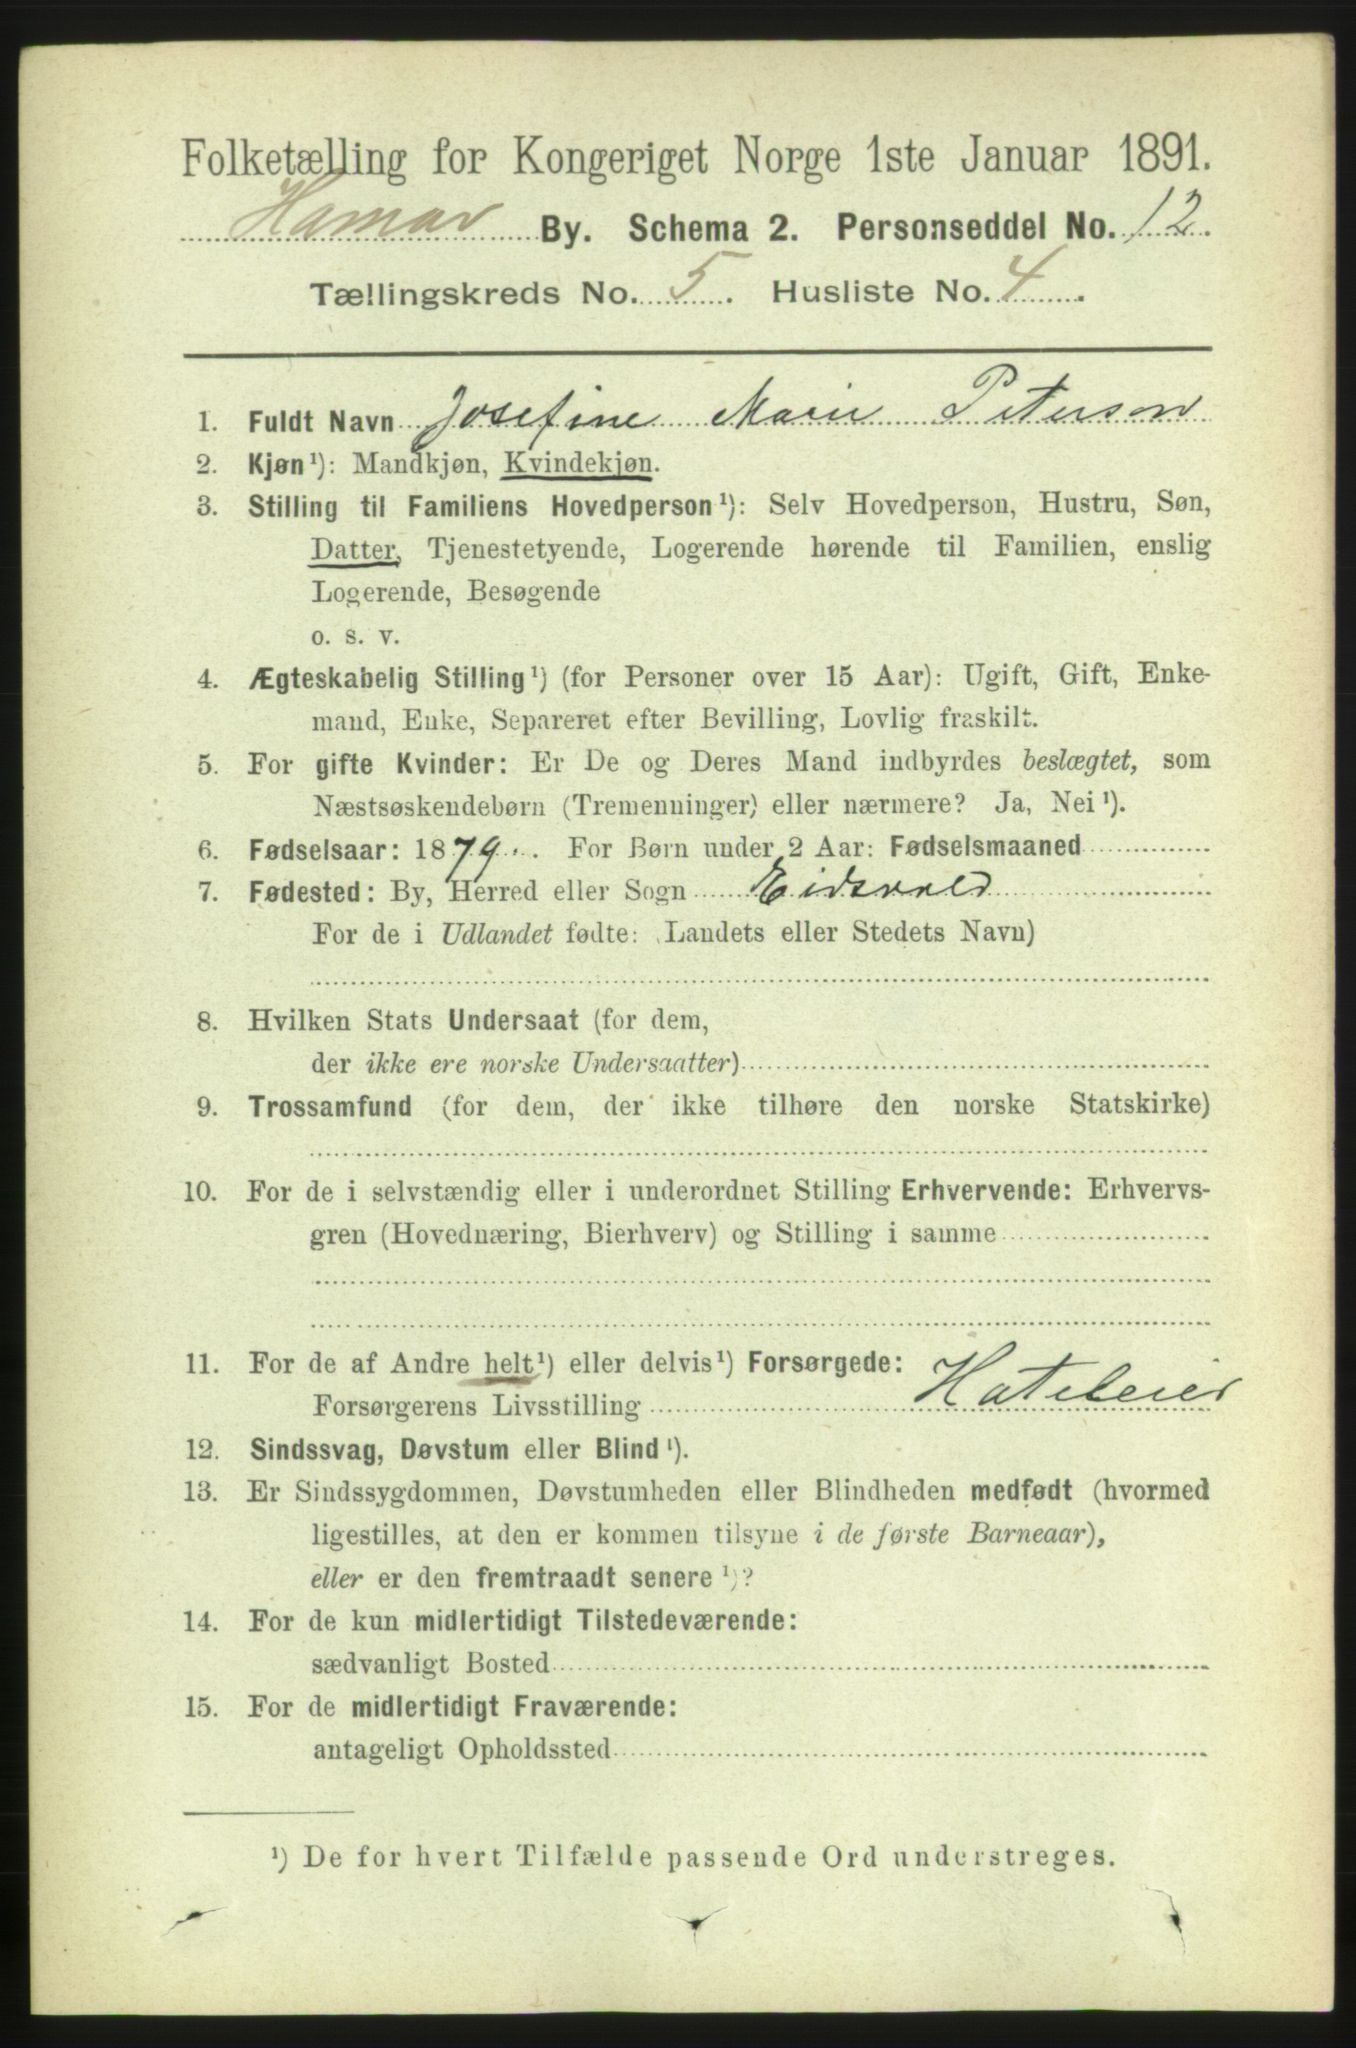 Folketælling for Kongeriget Norge 1ste Januar 1891.
Hamar By. Schema 2. Personseddel No. 12.
Tællingskreds No. 5. Husliste No. 4.
1. Fuldt Navn Josefine Marie Peterson
2. Kjøn¹): Mandkjøn, Kvindekjøn.
3. Stilling til Familiens Hovedperson¹): Selv Hovedperson, Hustru, Søn,
Datter, Tjenestetyende, Logerende hørende til Familien, enslig
Logerende, Besøgende
o. s. v.
4. Ægteskabelig Stilling¹) (for Personer over 15 Aar): Ugift, Gift, Enke-
mand, Enke, Separeret efter Bevilling, Lovlig fraskilt.
5. For gifte Kvinder: Er De og Deres Mand indbyrdes beslægtet, som
Næstsøskendebørn (Tremenninger) eller nærmere? Ja, Nei¹).
6. Fødselsaar: 1879. For Børn under 2 Aar: Fødselsmaaned
7. Fødested: By, Herred eller Sogn Eidsvold
For de i Udlandet fødte: (Landets eller Stedets Navn)
8. Hvilken Stats Undersaat (for dem,
der ikke ere norske Undersaatter)
9. Trossamfund (for dem, der ikke tilhøre den norske Statskirke)
10. For de i selvstændig eller i underordnet Stilling Erhvervende: Erhvervs-
gren (Hovednæring, Bierhverv) og Stilling i samme
11. For de af Andre helt¹) eller delvis¹) Forsørgede:
Forsørgerens Livsstilling Hoteleier
12. Sindssvag, Døvstum eller Blind¹).
13. Er Sindssygdommen, Døvstumheden eller Blindheden medfødt (hvormed
ligestilles, at den er kommen tilsyne i de første Barneaar),
eller er den fremtraadt senere¹)?
14. For de kun midlertidigt Tilstedeværende:
sædvanligt Bosted
15. For de midlertidigt Fraværende:
antageligt Opholdssted
¹) De for hvert Tilfælde passende Ord understreges.